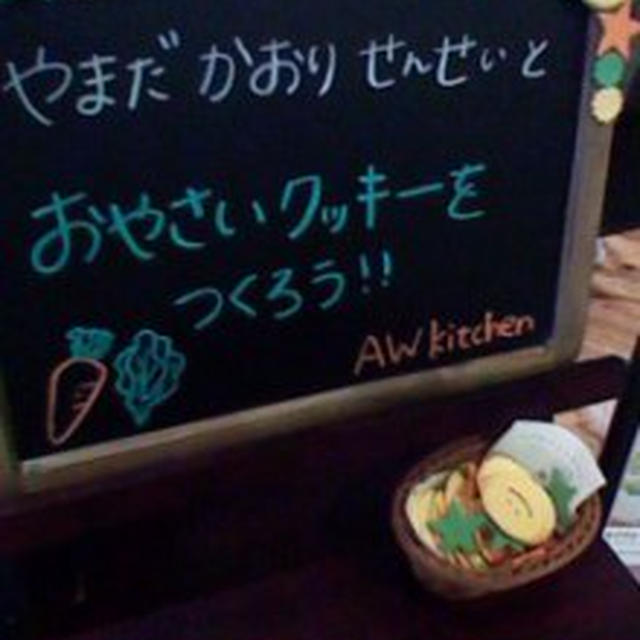 やまだ かおり せんせいと
おやさいクッキーを
つくろう!!
AW kitchen